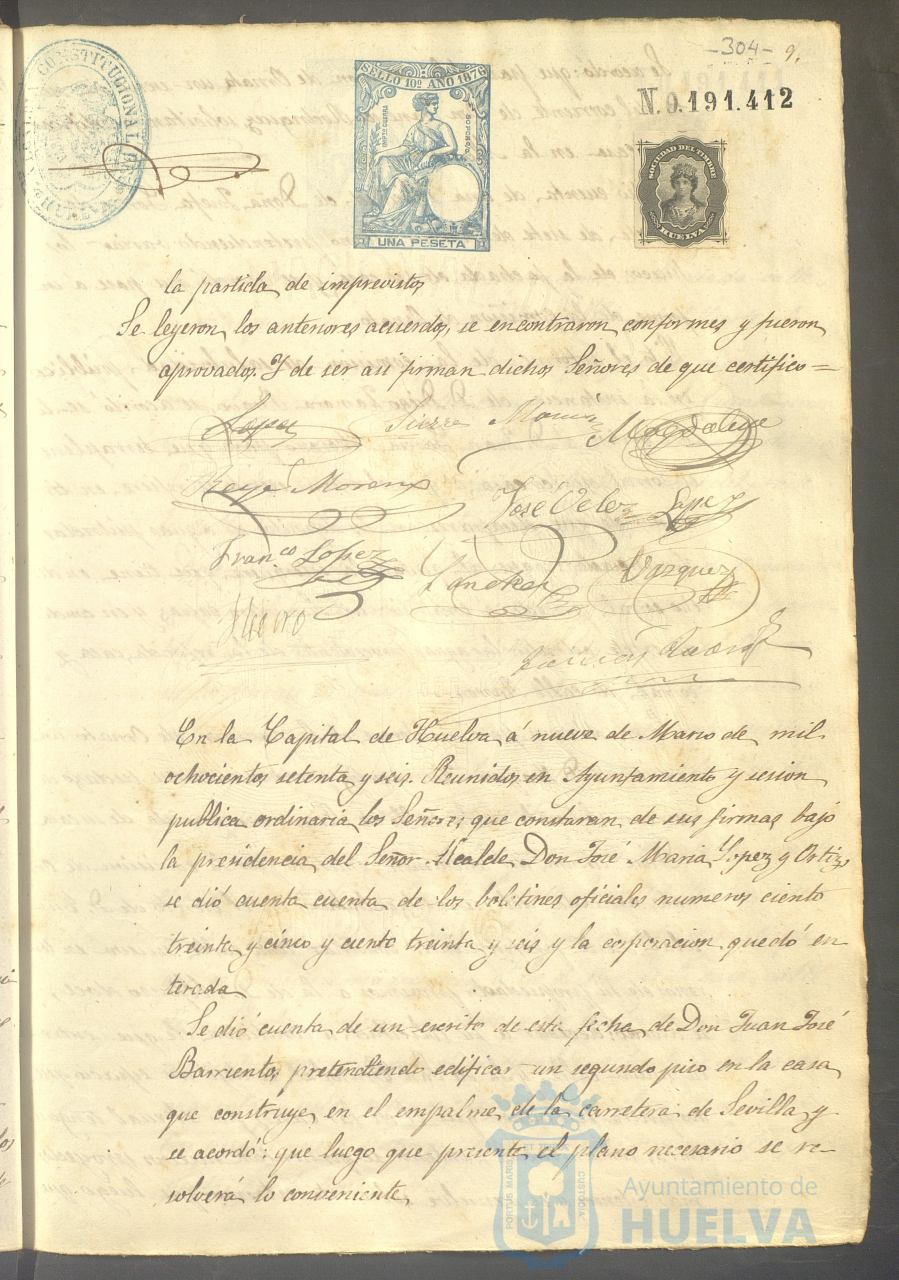 -304- 9.
CONSTITUCIONAL
SELLO 10º AÑO 1876
UNA PESETA
N. 0.191.412
SOCIEDAD DEL TIMBRE
HUELVA
la partida de imprevistos
Se leyeron los anteriores acuerdos, se encontraron conformes y fueron
aprovados. Y de ser asi firman dichos Señores de que certifico=
Lopez
Magdalena
Moreno
José Velez Lopez
Franco Lopez
Sanchez
Vazquez
En la Capital de Huelva á nueve de Marzo de mil
ochocientos setenta y seis. Reunidos en Ayuntamiento y sesion
publica ordinaria los Señores que constaran de sus firmas bajo
la presidencia del Señor Alcalde Don José Maria Lopez y Ortiz,
se dió cuenta cuenta de los boletines oficiales numeros ciento
treinta y cinco y ciento treinta y seis y la corporacion quedó en
terada
Se dió cuenta de un escrito de esta fecha de Don Juan José
Barriento, pretendiendo edificar un segundo piso en la casa
que construye en el empalme de la carretera de Sevilla y
se acordó: que luego que presente el plano necesario se re-
solverá lo conveniente.
PORTUS MARIS CUSTODIA
Ayuntamiento de
HUELVA